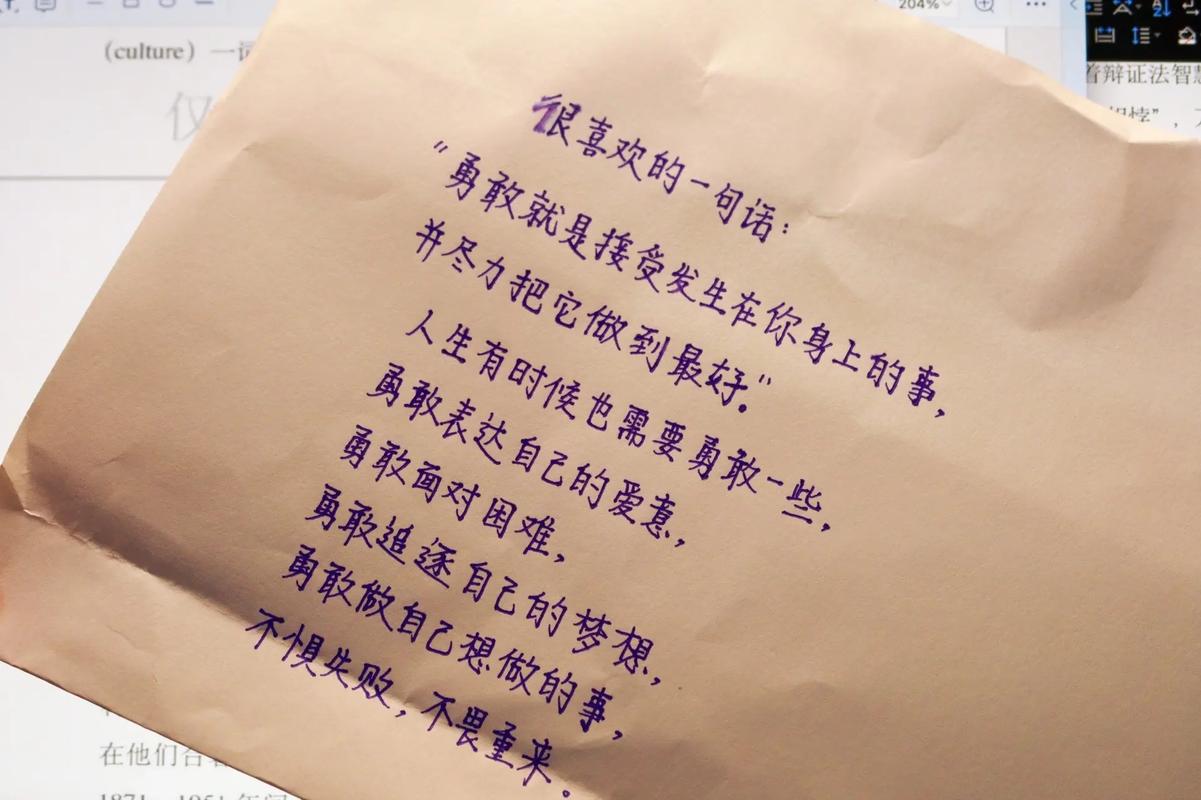 204%
(culture) 一
仅
着辩证法智慧
相悖”,
很喜欢的一句话:
“勇敢就是接受发生在你身上的事,
并尽力把它做到最好。”
人生有时候也需要勇敢一些,
勇敢表达自己的爱意,
勇敢面对困难,
勇敢追逐自己的梦想,
勇敢做自己想做的事,
不惧失败,不畏重来。
在他们合著
1871—1951 年间